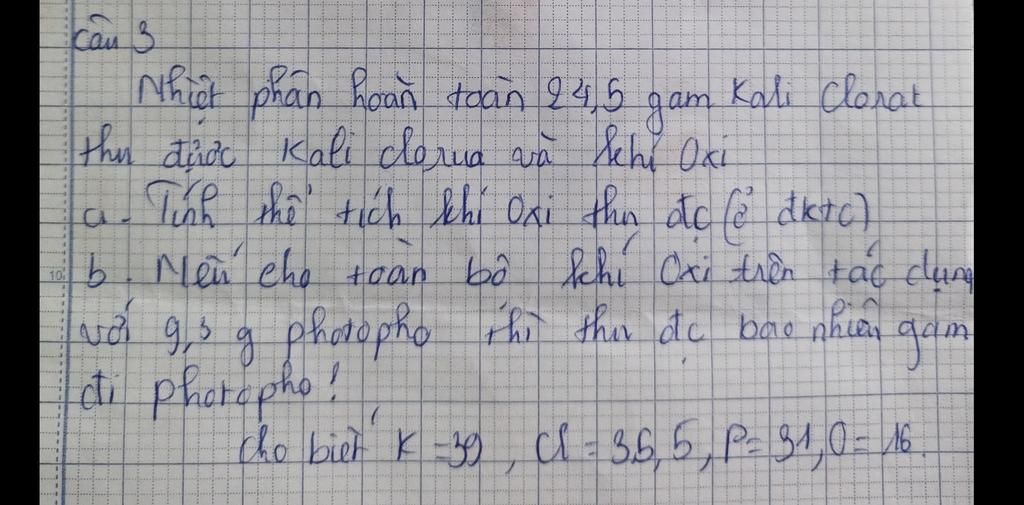 Câu 3
Nhiệt phân hoàn toàn 24,5 gam Kali Clorat
thu được Kali clorua và khí Oxi
a. Tính thể tích khí Oxi thu đc (ở đktc)
b. Nếu cho toàn bộ khí Oxi trên tác dụng
với 9,3 g photopho thì thu đc bao nhiêu gam
đi photopho!
Cho biết K=39, Cl=35,5, P=31, O=16.